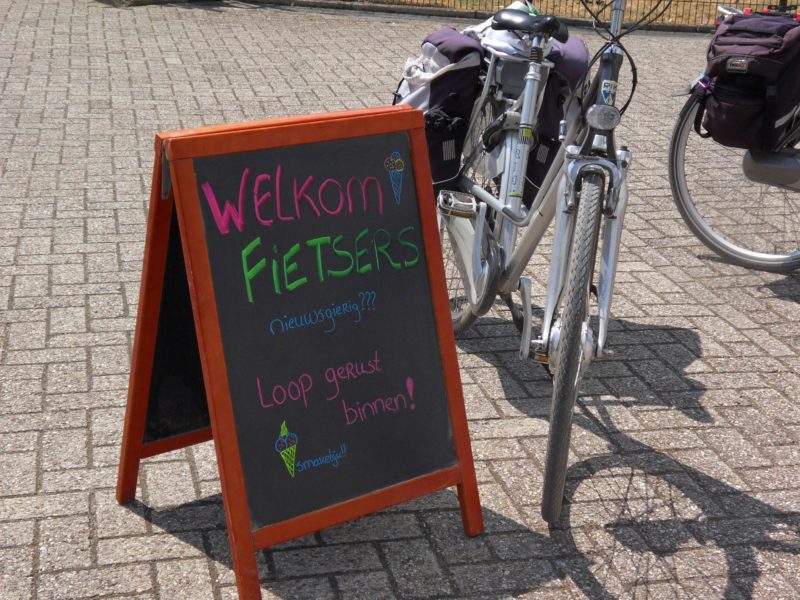 WELKOM
FiETSERS
nieuwsgierig???
Loop gerust
binnen!
smakelijk!!